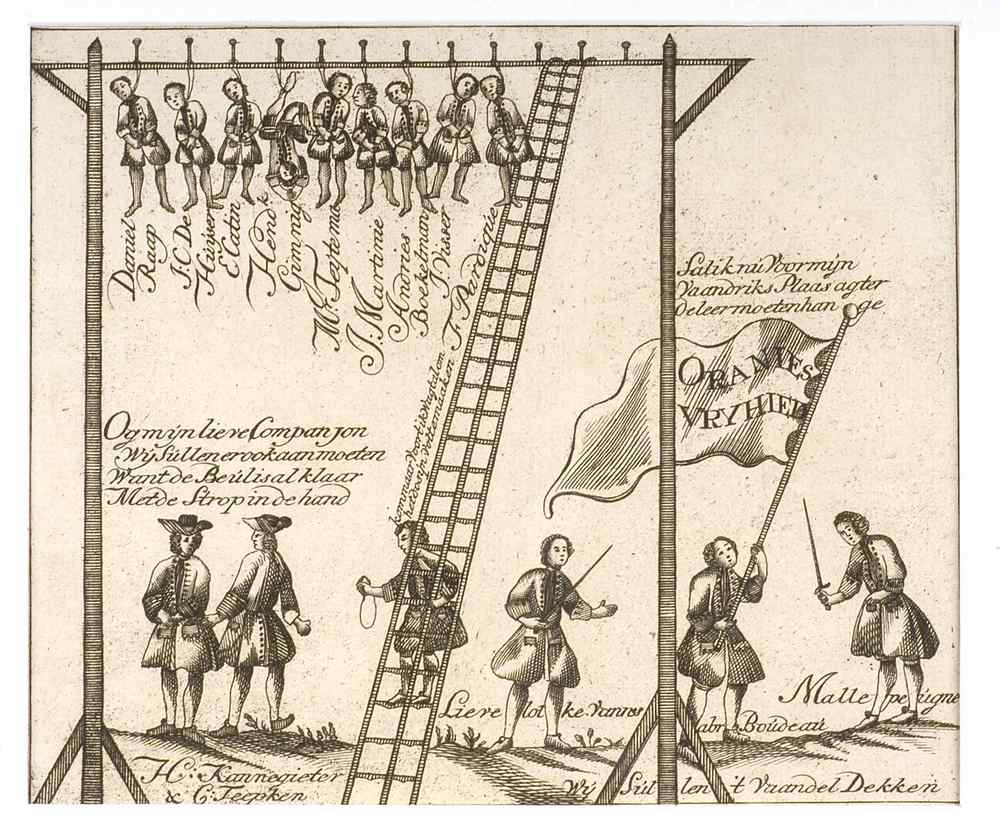 Daniel
Raap
J. C. De
Huÿser
E Catin
Hend k
Gimmig
Mr. Tepeme
J. Martinie
Andries
Boekelman
J Visser
F. Pardigie
Salik nú Voor mijn
Vaandriks Plaas agter
De leer moeten han ge
ORANIES
VRYHIED
Og mijn lieve Companjon
Wÿ Súllen er ook aan moeten
Want de Beúl is al klaar
Met de Strop in de hand
kom maar Voort ik
Lieve lot ke. Vannes
abr Boúdeaú
Malle pe úgne
H: Kannegieter
& C: Teepken
Wÿ Súl len 't Vaandel Dekken